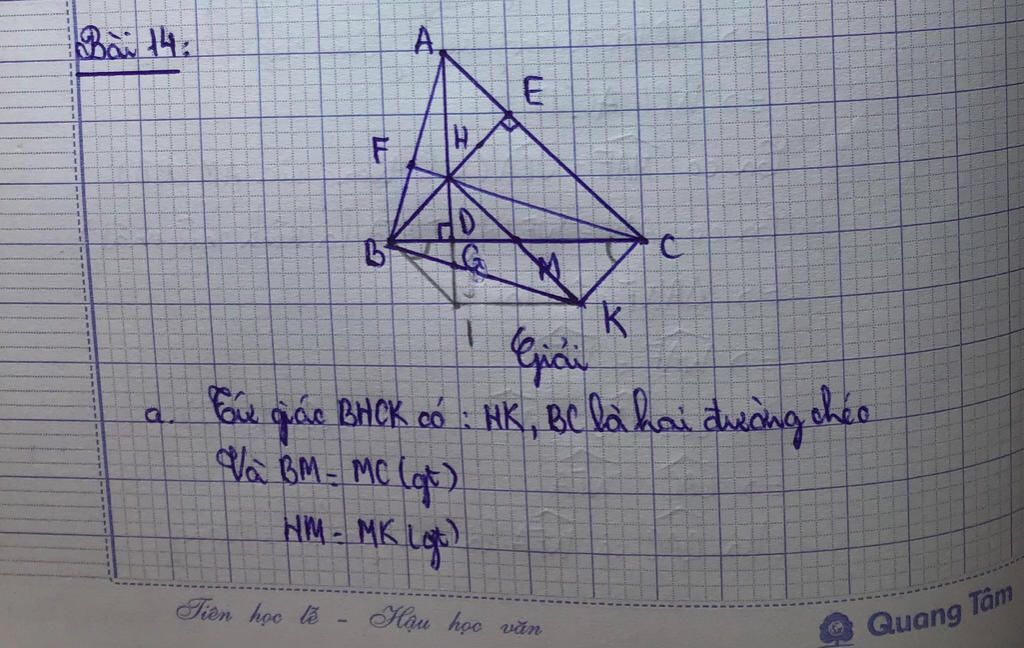 Bài 14:
A
E
H
F
D
B
G
M
C
I
K
Giải
a. Tứ giác BHCK có: HK, BC là hai đường chéo
Và BM = MC (gt)
HM = MK (gt)
Tiên học lễ - Hậu học văn
Quang Tâm